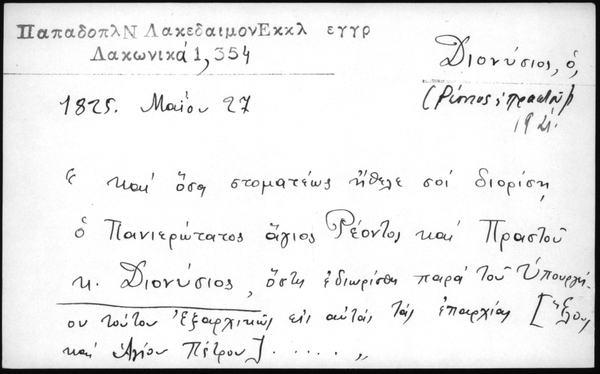 ΠαπαδοπλΝ ΛακεδαιμονΕκκλ εγγρ
Λακωνικά 1, 354
Διονύσιος, ὁ,
(Ρέοντος & πραστοῦ)
1825. Μαΐου 27
" καί ὅσα στοματέως ἤθελε σοί διορίση
ὁ Πανιερώτατος ἅγιος Ῥέοντος καί Πραστοῦ
κ. Διονύσιος, ὅστις ἐδιωρίσθη παρά τοῦ Ὑπουργεί-
ου τούτου Ἐξαρχικῶς εἰς αὐτάς τάς ἐπαρχίας [Ἕλους
καί Ἁγίου Πέτρου] . . . . . "